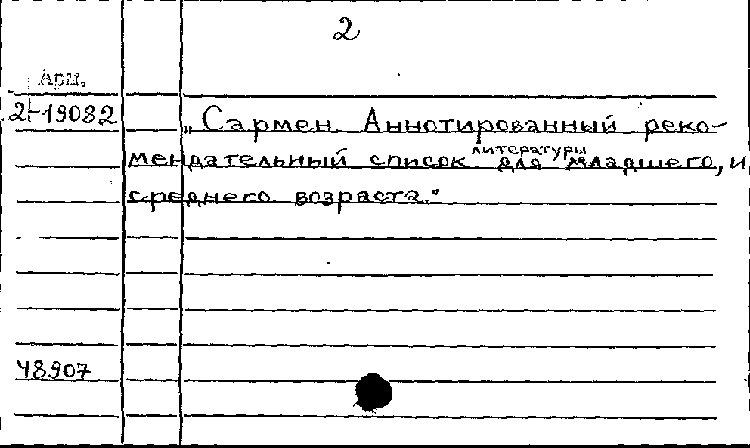 2
Арм.
2-19082
„Сармен. Аннотированный реко-
мендательный список литературы для младшего, и
среднего возраста."
48907